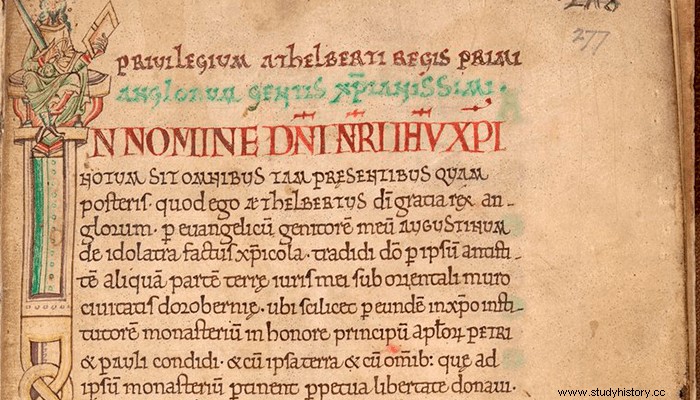 277
PRIVILEGIUM ATHELBERTI REGIS PRIMI
ANGLORUM GENTIS XP̄IANISSIMI·
N NOMINE DN̄I N̄RI IH̄V XP̄I
NOTUM SIT OMNIBUS TAM PRESENTIBUS QUAM
posteris· quod ego ÆTHELBERTUS dī gratia rex an-
glorum· ꝑ euangelicū genitorē meū AUGUSTINUM
de idolatra factus xp̄icola· tradidi dō ꝑ ipsū antisti-
tē aliquā partē terrę iuris mei sub orientali muro
ciuitatis dorobernię· ubi scilicet ꝑ eundē in xp̄o insti-
tutorē monasteriū in honore principū apl̄oꝝ PETRI
& pauli condidi· & cū ipsa terra & cū om̄ib: quę ad
ipsū monasteriū ꝑtinent ꝑpetua libertate donaui·
© www.studyhistory.cc